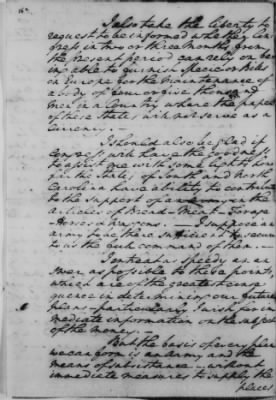 I also take the liberty to
request to be informed whether Con-
gress in two or three months from
the present period can rely on be-
ing able to furnish Specie or Bills
on Europe for the maintenance of
a body of four or five thousand
Men in a Country where the paper
of these States will not serve as a
Currency. —
I should also be glad if
Congress will have the goodness
to assist me with some lights how
far the States of South and North
Carolina have ability to contribute
to the support of an army in the
articles of Bread - Meat - Forage
Horses & Waggons. — I suppose an
army to be there sufficient to secure
to us the full command of them. —
I entreat as speedy an an-
swer as possible to these points,
which are of the greatest conse
quence in determining our future
Plans - particularly I wish for im
mediate information on the subject
of the money. —
But the basis of every plan
we can form is an army and the
means of subsistance - without
immediate measures to supply the
places